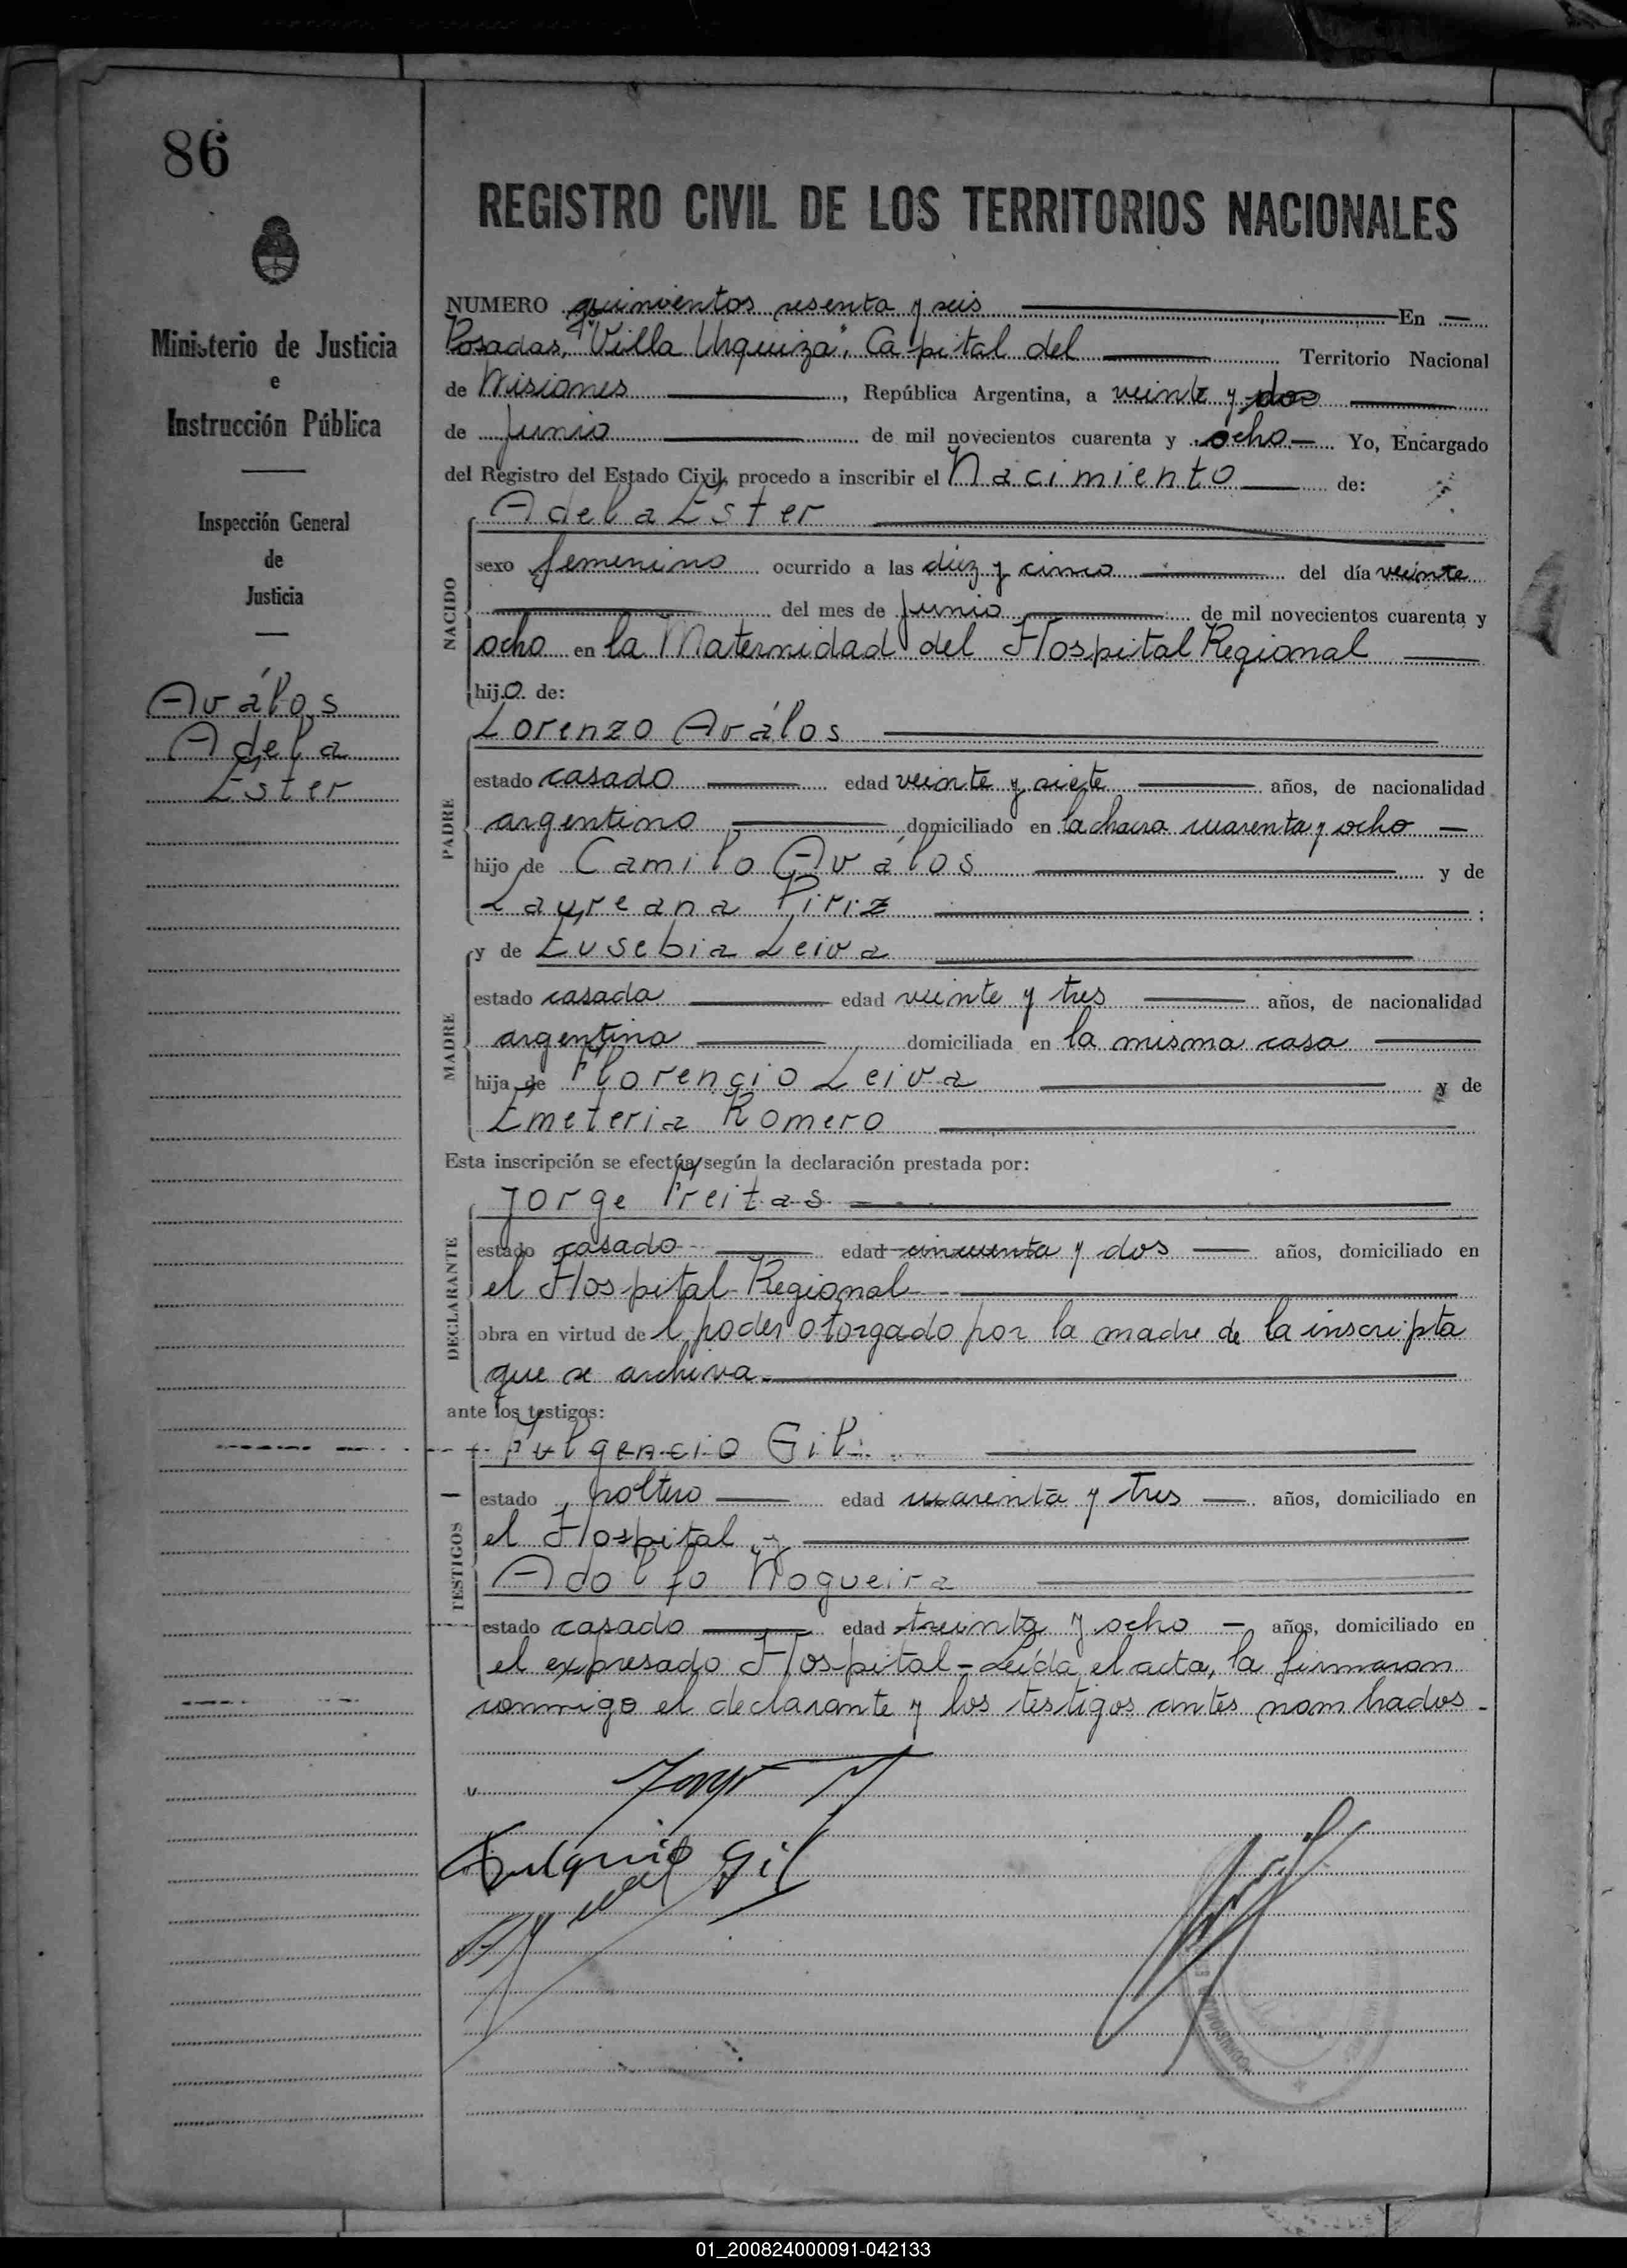 86
Ministerio de Justicia
e
Instrucción Pública
Inspección General
de
Justicia
Aválos
Adela
Ester
REGISTRO CIVIL DE LOS TERRITORIOS NACIONALES
NUMERO quinientos sesenta y seis En
Posadas, "Villa Urquiza", Capital del Territorio Nacional
de Misiones, República Argentina, a veinte y dos
de junio de mil novecientos cuarenta y ocho Yo, Encargado
del Registro del Estado Civil, procedo a inscribir el Nacimiento de:
Adela Ester
NACIDO
sexo femenino ocurrido a las diez y cinco del día veinte
del mes de junio de mil novecientos cuarenta y
ocho en la Maternidad del Hospital Regional
hijo de:
PADRE
Lorenzo Aválos
estado casado edad veinte y siete años, de nacionalidad
argentino domiciliado en la chacra cuarenta y ocho
hijo de Camilo Aválos y de
Laureana Piriz ;
MADRE
y de Eusebia Leiva
estado casada edad veinte y tres años, de nacionalidad
argentina domiciliada en la misma casa
hija de Florencio Leiva y de
Emeteria Romero
Esta inscripción se efectúa según la declaración prestada por:
DECLARANTE
Jorge Freitas
estado casado edad cincuenta y dos años, domiciliado en
el Hospital Regional
obra en virtud del poder otorgado por la madre de la inscripta
que se archiva.
ante los testigos:
TESTIGOS
Fulgencio Gil
estado soltero edad cuarenta y tres años, domiciliado en
el Hospital y
Adolfo Nogueira
estado casado edad treinta y ocho años, domiciliado en
el expresado Hospital - Leída el acta, la firmaron
conmigo el declarante y los testigos antes nombrados -
Gil
01_200824000091-042133